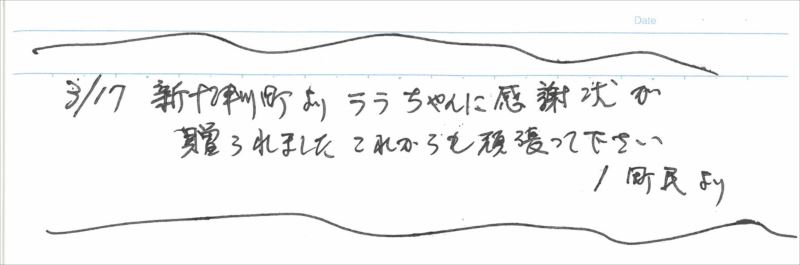 Date
3/17 新十津川町より ララちゃんに感謝状が
贈られました これからも頑張って下さい
/ 町民より